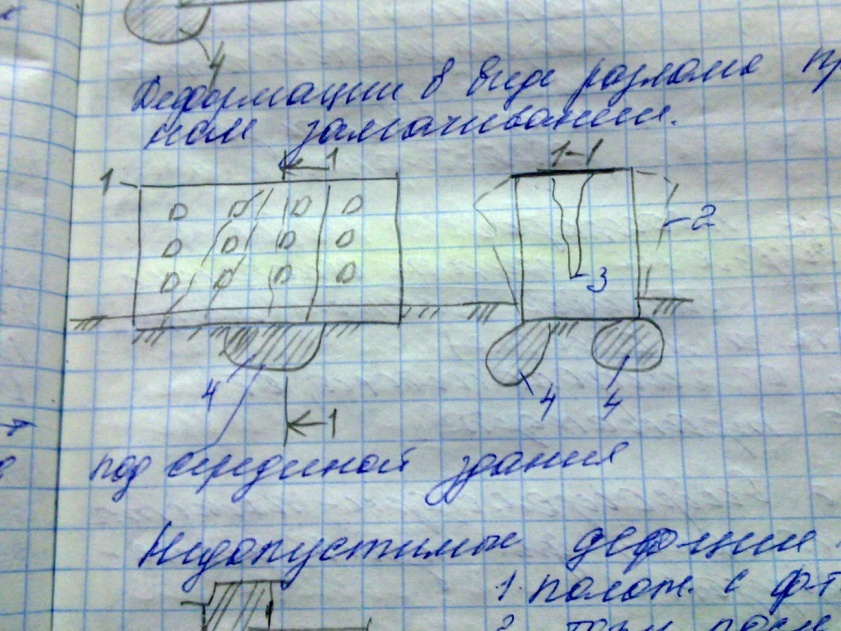 4
Деформации в виде разлома пр
ном замачивании.
1 1 1-1
2
3
4 4 4
1
под серединой здания
Недопустимые деф-ции
1. полож. с ф.т.
2